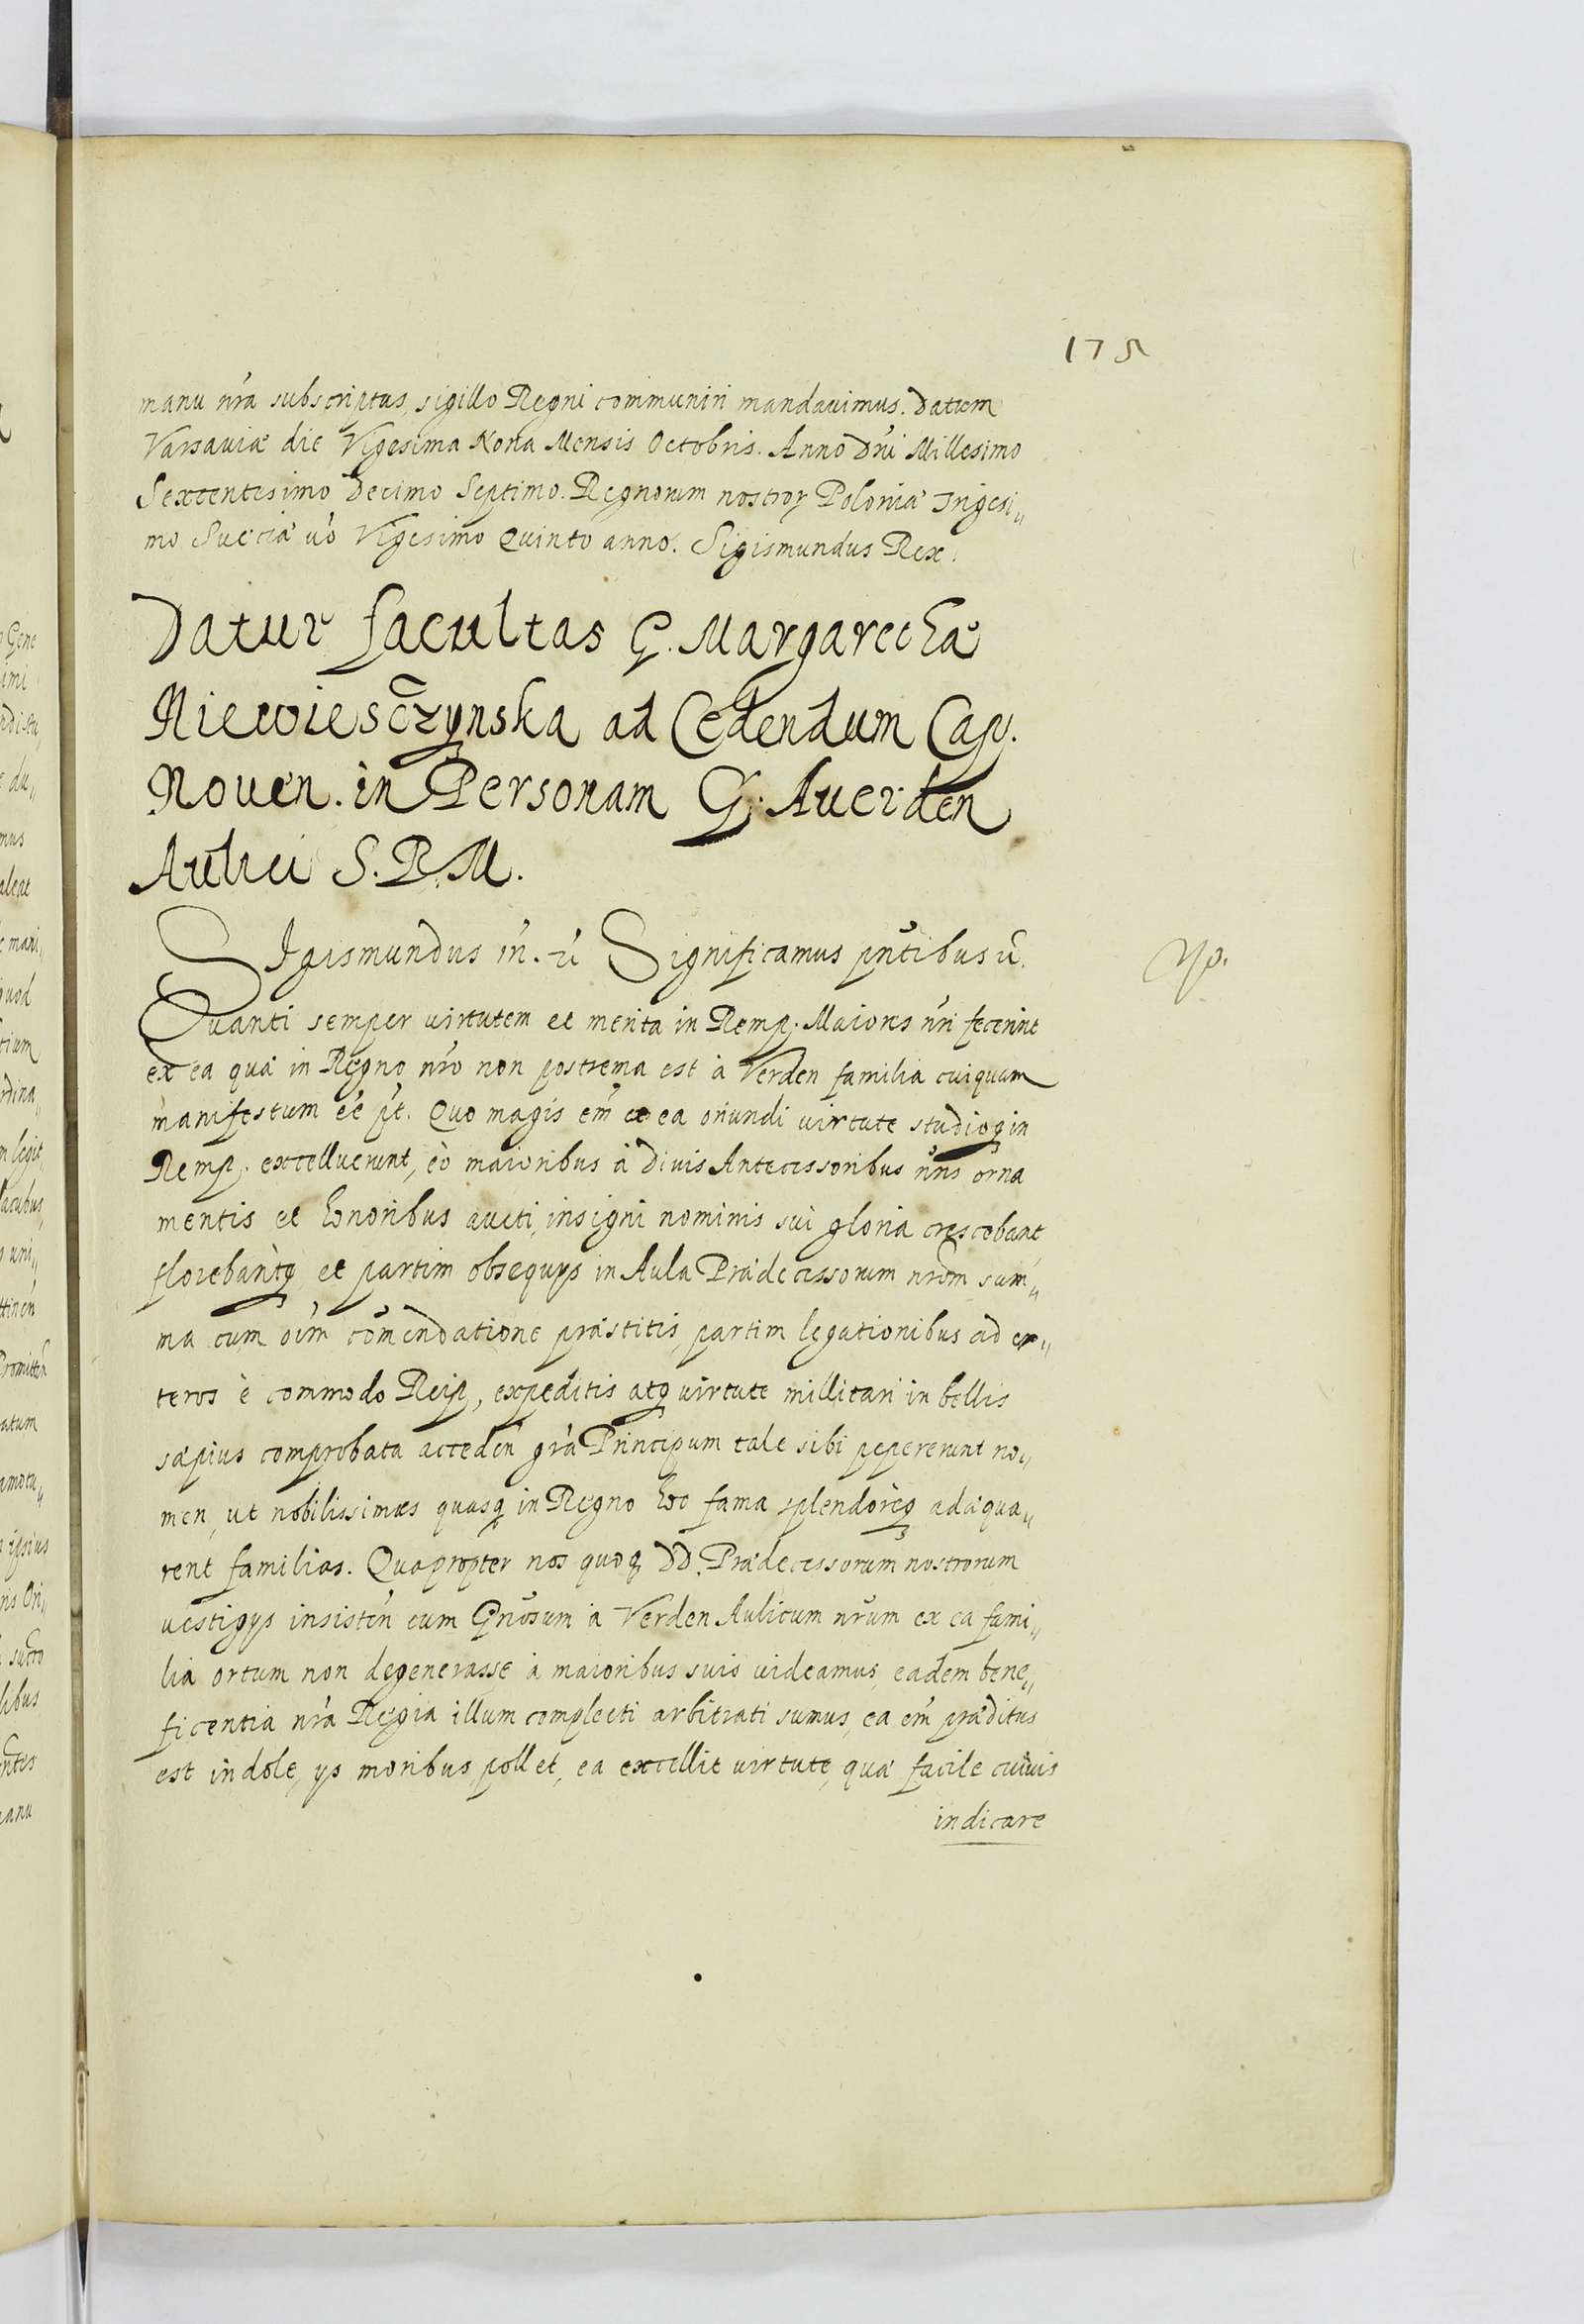 175
manu nr̃a subscriptas, sigillo Regni communiri mandauimus. Datum
Varsauiæ die Vigesima Nona Mensis Octobris. Anno Dñi Millesimo
Sexcentesimo Decimo Septimo. Regnorum nostror Poloniæ Trigesi„
mo Sueciæ ũo Vigesimo Quinto anno. Sigismundus Rex.
Datur facultas G. Margarethæ
Niewiesczynska ad Cedendum Cap.
Nouen. in Personam G. Auerden
Aulici S.R.M.
SIgismundus ĩn. Significamus pñtibus
Quanti semper virtutem et merita in Remp. Maiores nr̃i fecerint
ex ea quæ in Regno nr̃o non postrema est à Verden familia cuiquam
manifestum eẽ pt̃. Quo magis em̃ ex ea oriundi virtute studioq in
Remp. excelluerunt, eò maioribus à Diuis Antecessoribus nr̃is orna
mentis et honoribus aucti, insigni nominis sui gloria crescebant
florebantq et partim obsequys in Aula Prædecessorum nrõm sum„
ma cum oĩm com̃endatione præstitis, partim legationibus ad ex„
teros è commodo Reip, expeditis atq virtute millitari in bellis
sæpius comprobata acceden̄ gr̃a Principum tale sibi pepererunt no„
men, ut nobilissimas quasq in Regno hoc fama splendoreq adæqua„
rent familias. Quapropter nos quoq DD. Prædecessorum nostrorum
vestigys insisteñ cum Gñosum à Verden Aulicum nr̃um ex ea fami„
lia ortum non degenerasse à maioribus suis uideamus, eadem bene„
ficentia nr̃a Regia illum complecti arbitrati sumus, ea em̃ præditus
est indole, ys moribus pollet, ea excellit virtute, quæ facile cuiuis
indicare